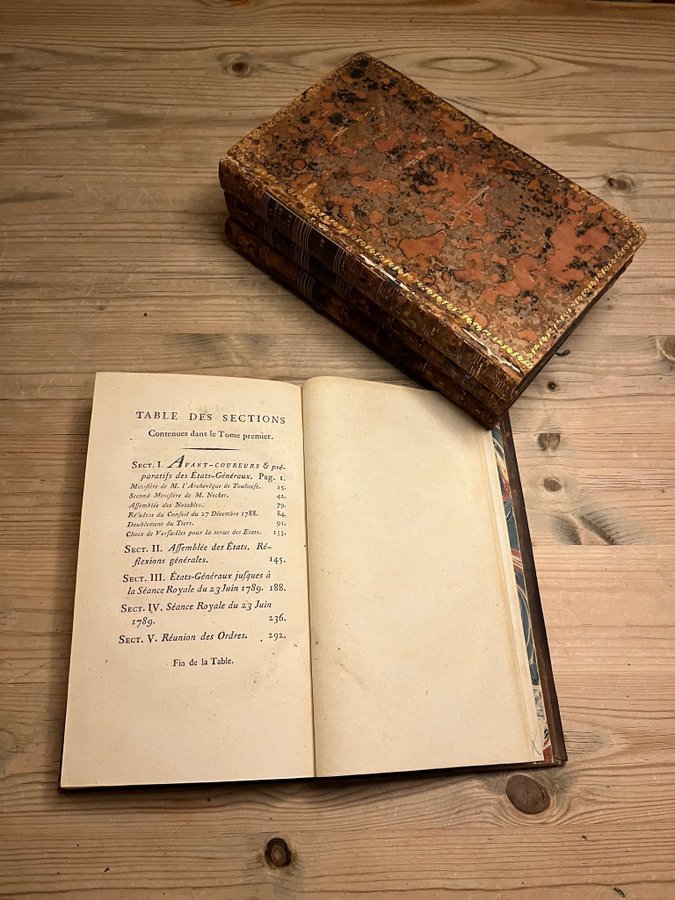 TABLE DES SECTIONS
Contenues dans le Tome premier.
SECT. I. AVANT-COUREURS & pré-
paratifs des États-Généraux. Pag. 1.
Miniſtère de M. l'Archevêque de Toulouſe. 15.
Second Miniſtère de M. Necker. 42.
Aſſemblée des Notables. 79.
Réſultat du Conſeil du 27 Décembre 1788. 84.
Doublement du Tiers. 91.
Choix de Verſailles pour la tenue des Etats. 133.
SECT. II. Aſſemblée des États. Ré-
flexions générales. 145.
SECT. III. États-Généraux juſques à
la Séance Royale du 23 Juin 1789. 188.
SECT. IV. Séance Royale du 23 Juin
1789. 236.
SECT. V. Réunion des Ordres. 292.
Fin de la Table.